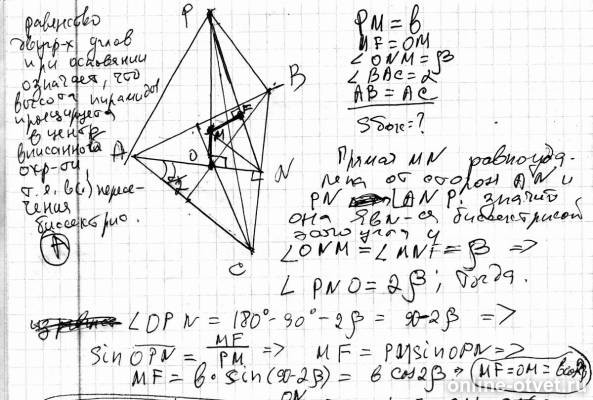 равенство
двугр-х углов
при основании
означает, что
высота пирамиды
проецируется
в центр
вписанной
окр-ти,
т.е. в(·) пересе-
чения
биссектрис.
P
B
A
M
F
O
N
C
PM = b
MF = OM
∠ONM = β
∠BAC = α
AB = AC
Sбок = ?
Прямая MN равноуда-
лена от сторон AN и
PN ∠ANP, значит
она явл-ся биссектрисой
этого угла и
∠ONM = ∠MNF = β =>
∠PNO = 2β; тогда.
∠OPN = 180° - 90° - 2β = 90 - 2β =>
sin OPN = MF/PM => MF = PM sin OPN =>
MF = b · sin(90 - 2β) = b cos 2β => MF = OM = b cos 2β
ON
online-otvet.ru